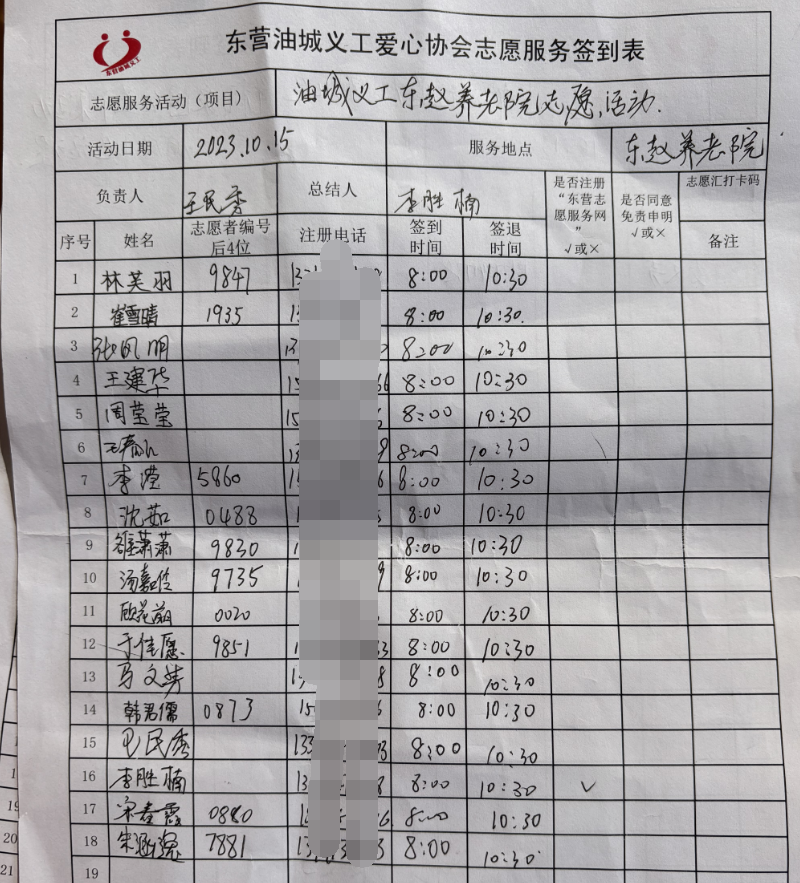 东营油城义工爱心协会志愿服务签到表
东营油城义工
志愿服务活动（项目） 油城义工东赵养老院志愿活动.
活动日期 2023.10.15 服务地点 东赵养老院
负责人 王民秀 总结人 李胜楠 是否注册“东营志愿服务网” √或× 是否同意免责申明 √或× 志愿汇打卡码
序号 姓名 志愿者编号后4位 注册电话 签到时间 签退时间 备注
1 林芙羽 9847 8:00 10:30
2 崔雪晴 1935 8:00 10:30
3 张凤明 8:00 10:30
4 王建华 8:00 10:30
5 周莹莹 8:00 10:30
6 8:00 10:30
7 李滢 5860 8:00 10:30
8 沈茹 0488 8:00 10:30
9 萧萧 9830 8:00 10:30
10 汤嘉 9735 8:00 10:30
11 0020 8:00 10:30
12 于佳愿 9851 8:00 10:30
13 马文 8:00 10:30
14 韩君儒 0873 8:00 10:30
15 民秀 133 8:00 10:30
16 李胜楠 8:00 10:30 √
17 宋春霞 0880 8:00 10:30
18 7881 8:00 10:30
19
20
21